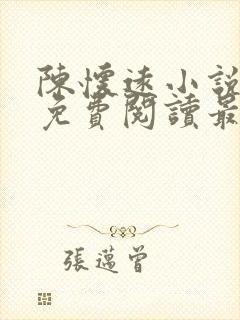 陳懷遠小說
免費閱讀最
張邁曾